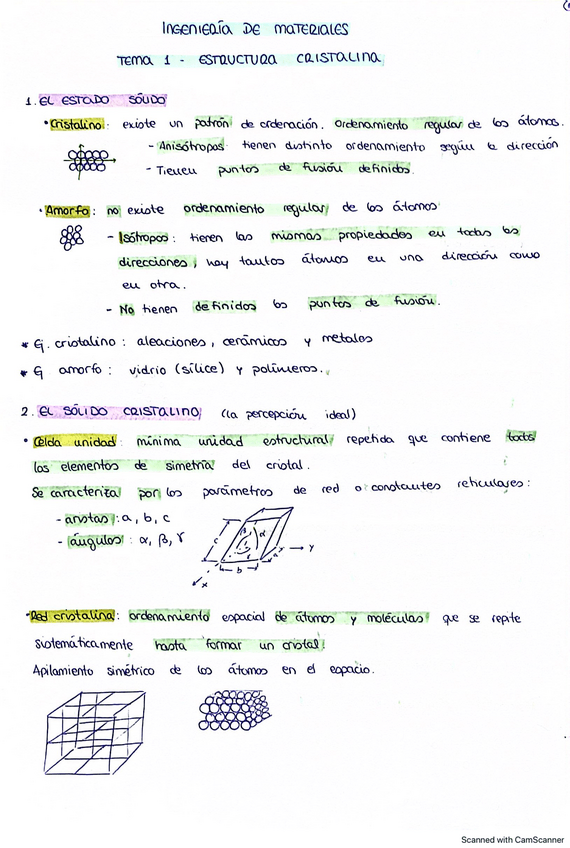 INGENIERÍA DE MATERIALES
TEMA 1 - ESTRUCTURA CRISTALINA
1. EL ESTADO SÓLIDO
• Cristalino: existe un patrón de ordenación. Ordenamiento regular de los átomos.
- Anisótropos: tienen distinto ordenamiento según la dirección
- Tienen puntos de fusión definidos.
• Amorfo: no existe ordenamiento regular de los átomos
- Isótropos: tienen las mismas propiedades en todas las
direcciones, hay tantos átomos en una dirección como
en otra.
- No tienen definidos los puntos de fusión.
* Ej. cristalino: aleaciones, cerámicos y metales
* Ej amorfo: vidrio (sílice) y polímeros.
2. EL SÓLIDO CRISTALINO (la percepción ideal)
• Celda unidad: mínima unidad estructural repetida que contiene todos
los elementos de simetría del cristal.
Se caracteriza por los parámetros de red o constantes reticulares:
- aristas: a, b, c
- ángulos: α, β, γ
c β α γ a y
b
x
• Red cristalina: ordenamiento espacial de átomos y moléculas que se repite
sistemáticamente hasta formar un cristal.
Apilamiento simétrico de los átomos en el espacio.
Scanned with CamScanner